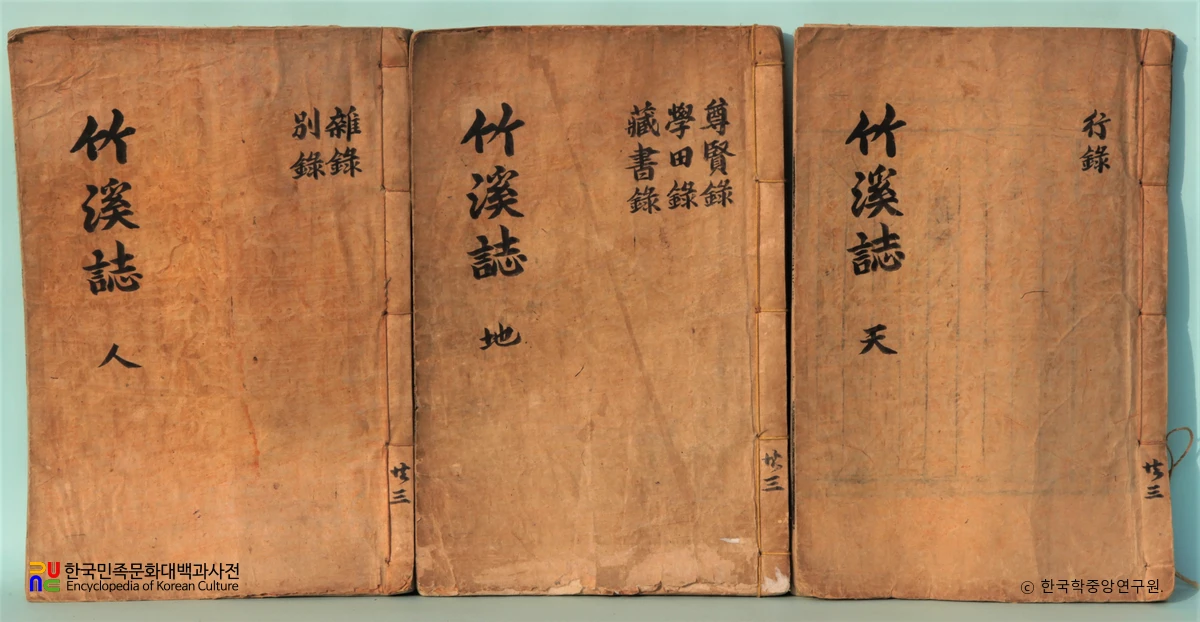 行錄
竹溪誌 天
共三
尊賢錄
學田錄
藏書錄
竹溪誌 地
共三
雜錄
別錄
竹溪誌 人
共三
한국민족문화대백과사전
Encyclopedia of Korean Culture
© 한국학중앙연구원.